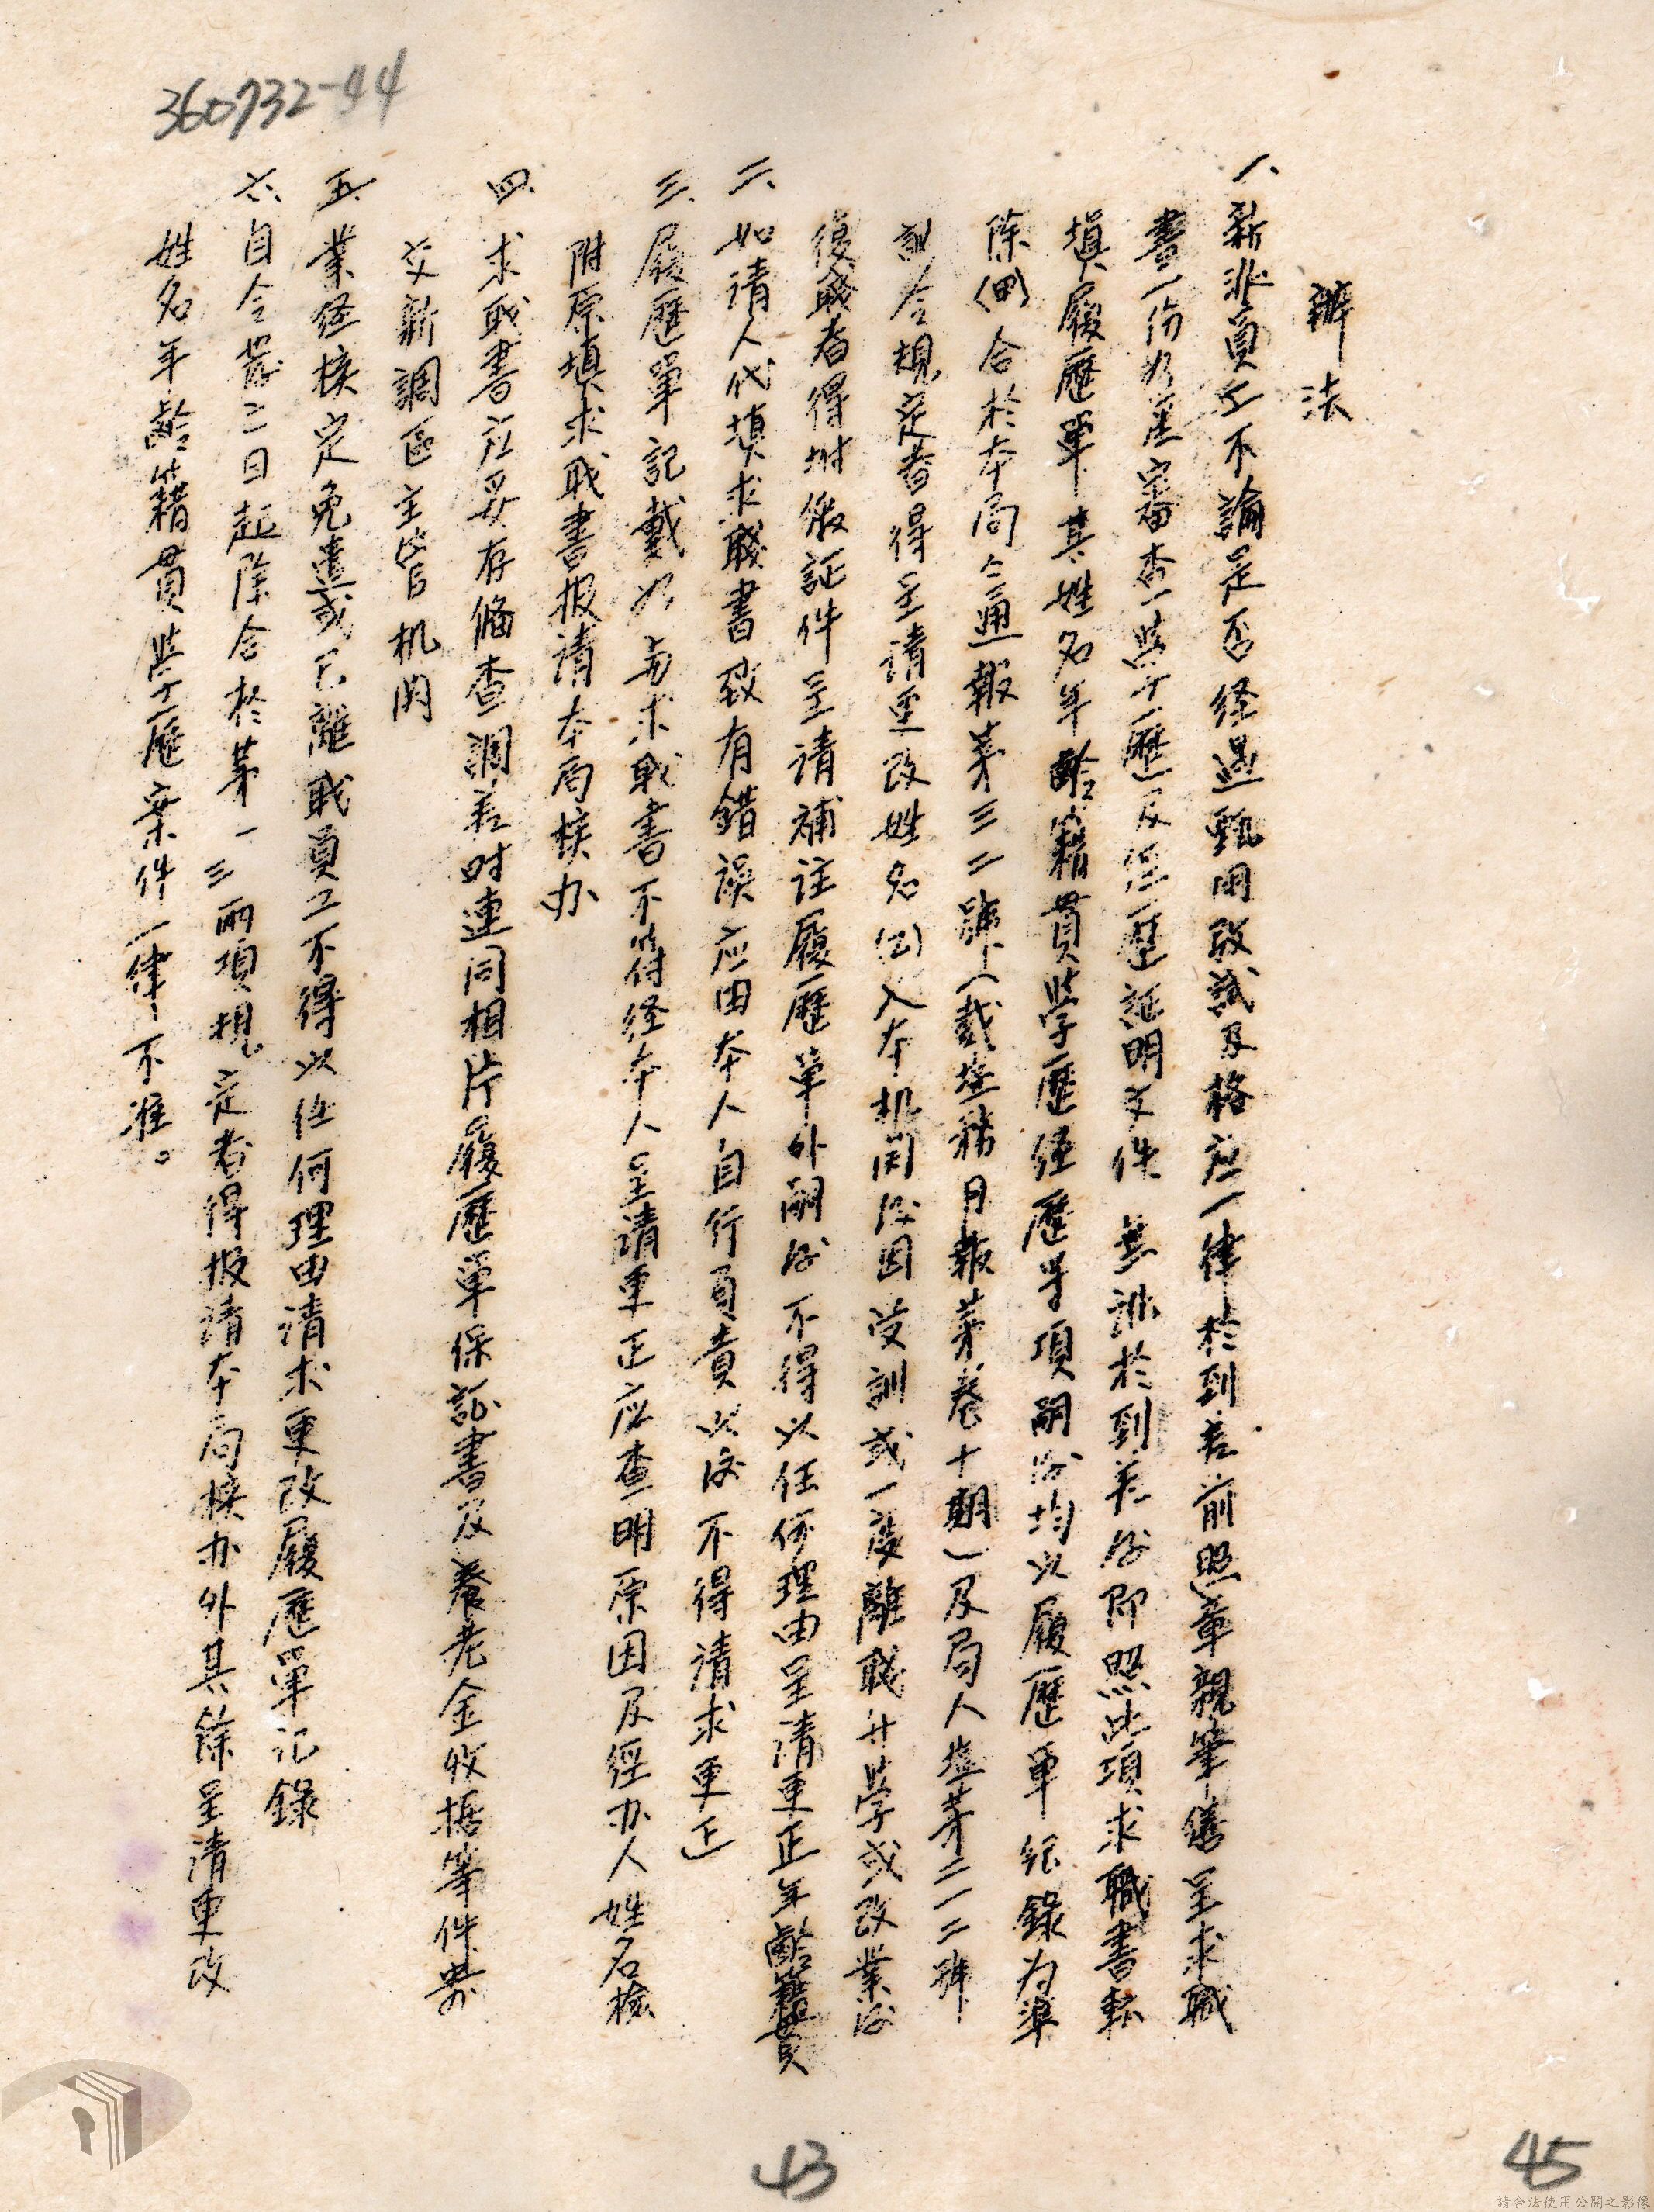 360732-44
辦法
一、新派員工不論是否経過甄用考試及格应一律於到差前照章親筆繕呈求職
書一份如産審查学歷及経歷証明文件無訛於到差後即照此項求職書転
填履歷單其姓名年齡籍貫学歷経歷等項嗣後均以履歷單紀錄为準
除(甲)合於本局仝通報第三二號(載塩務月報第卷十期)及局人塩第二一二号
訓令規定者得呈請更改姓名(乙)入本机関後因受訓或一度離職升学或改業後
復職者得坿繳証件呈请補註履歷单外嗣後不得以任何理由呈请更正年齡籍貫
二、如请人代填求職書致有錯誤应由本人自行負責以後不得请求更正
三、履歷單記載如与求职書不符経本人呈请更正应查明原因及経办人姓名檢
附原填求职書报请本局核办
四、求职書应妥存俻查調差时連同相片履歷单保証書及養老金收据等件寄
交新調区主管机関
五、業経核定免遣或已離职員工不得以任何理由请求更改履歷單记錄
六、自令发之日起除合於第一三两項規定者得报请本局核办外其餘呈请更改
姓名年齡籍貫学歷案件一律不准。
43
45
請合法使用公開之影像